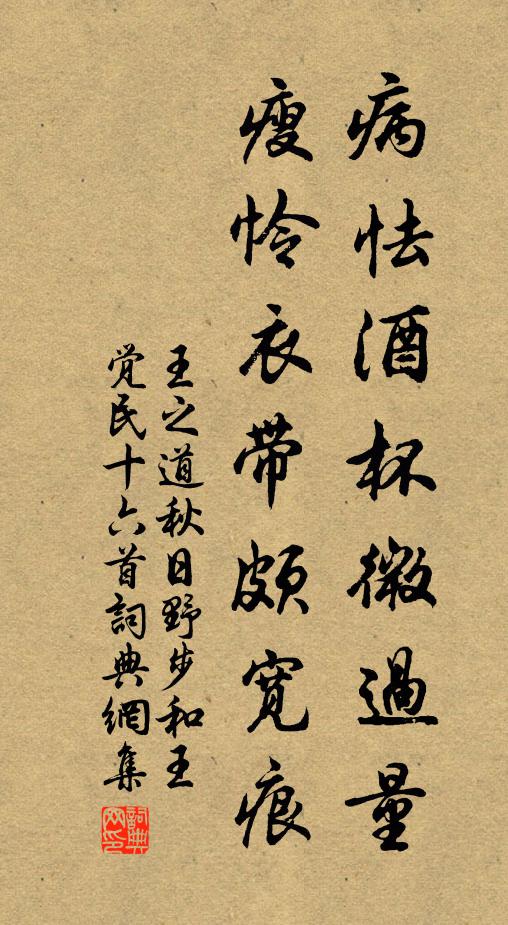 病怯酒杯微過量
瘦怜衣带頗寬痕
王之道秋日野步和王
觉民十六首詞典網集
詞典
网印